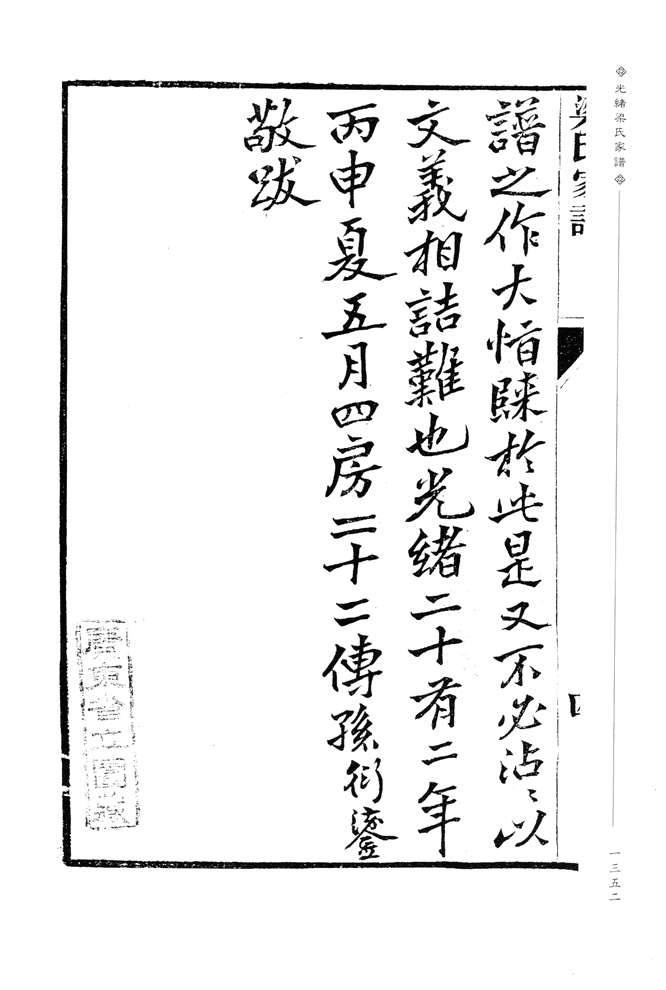 光緒梁氏家譜
一三五二
梁氏家譜
四
譜之作大恉睞於此是又不必沾〻以
文義相詰難也光緒二十有二年
丙申夏五月四房二十二傳孫衍鎏
敬跋